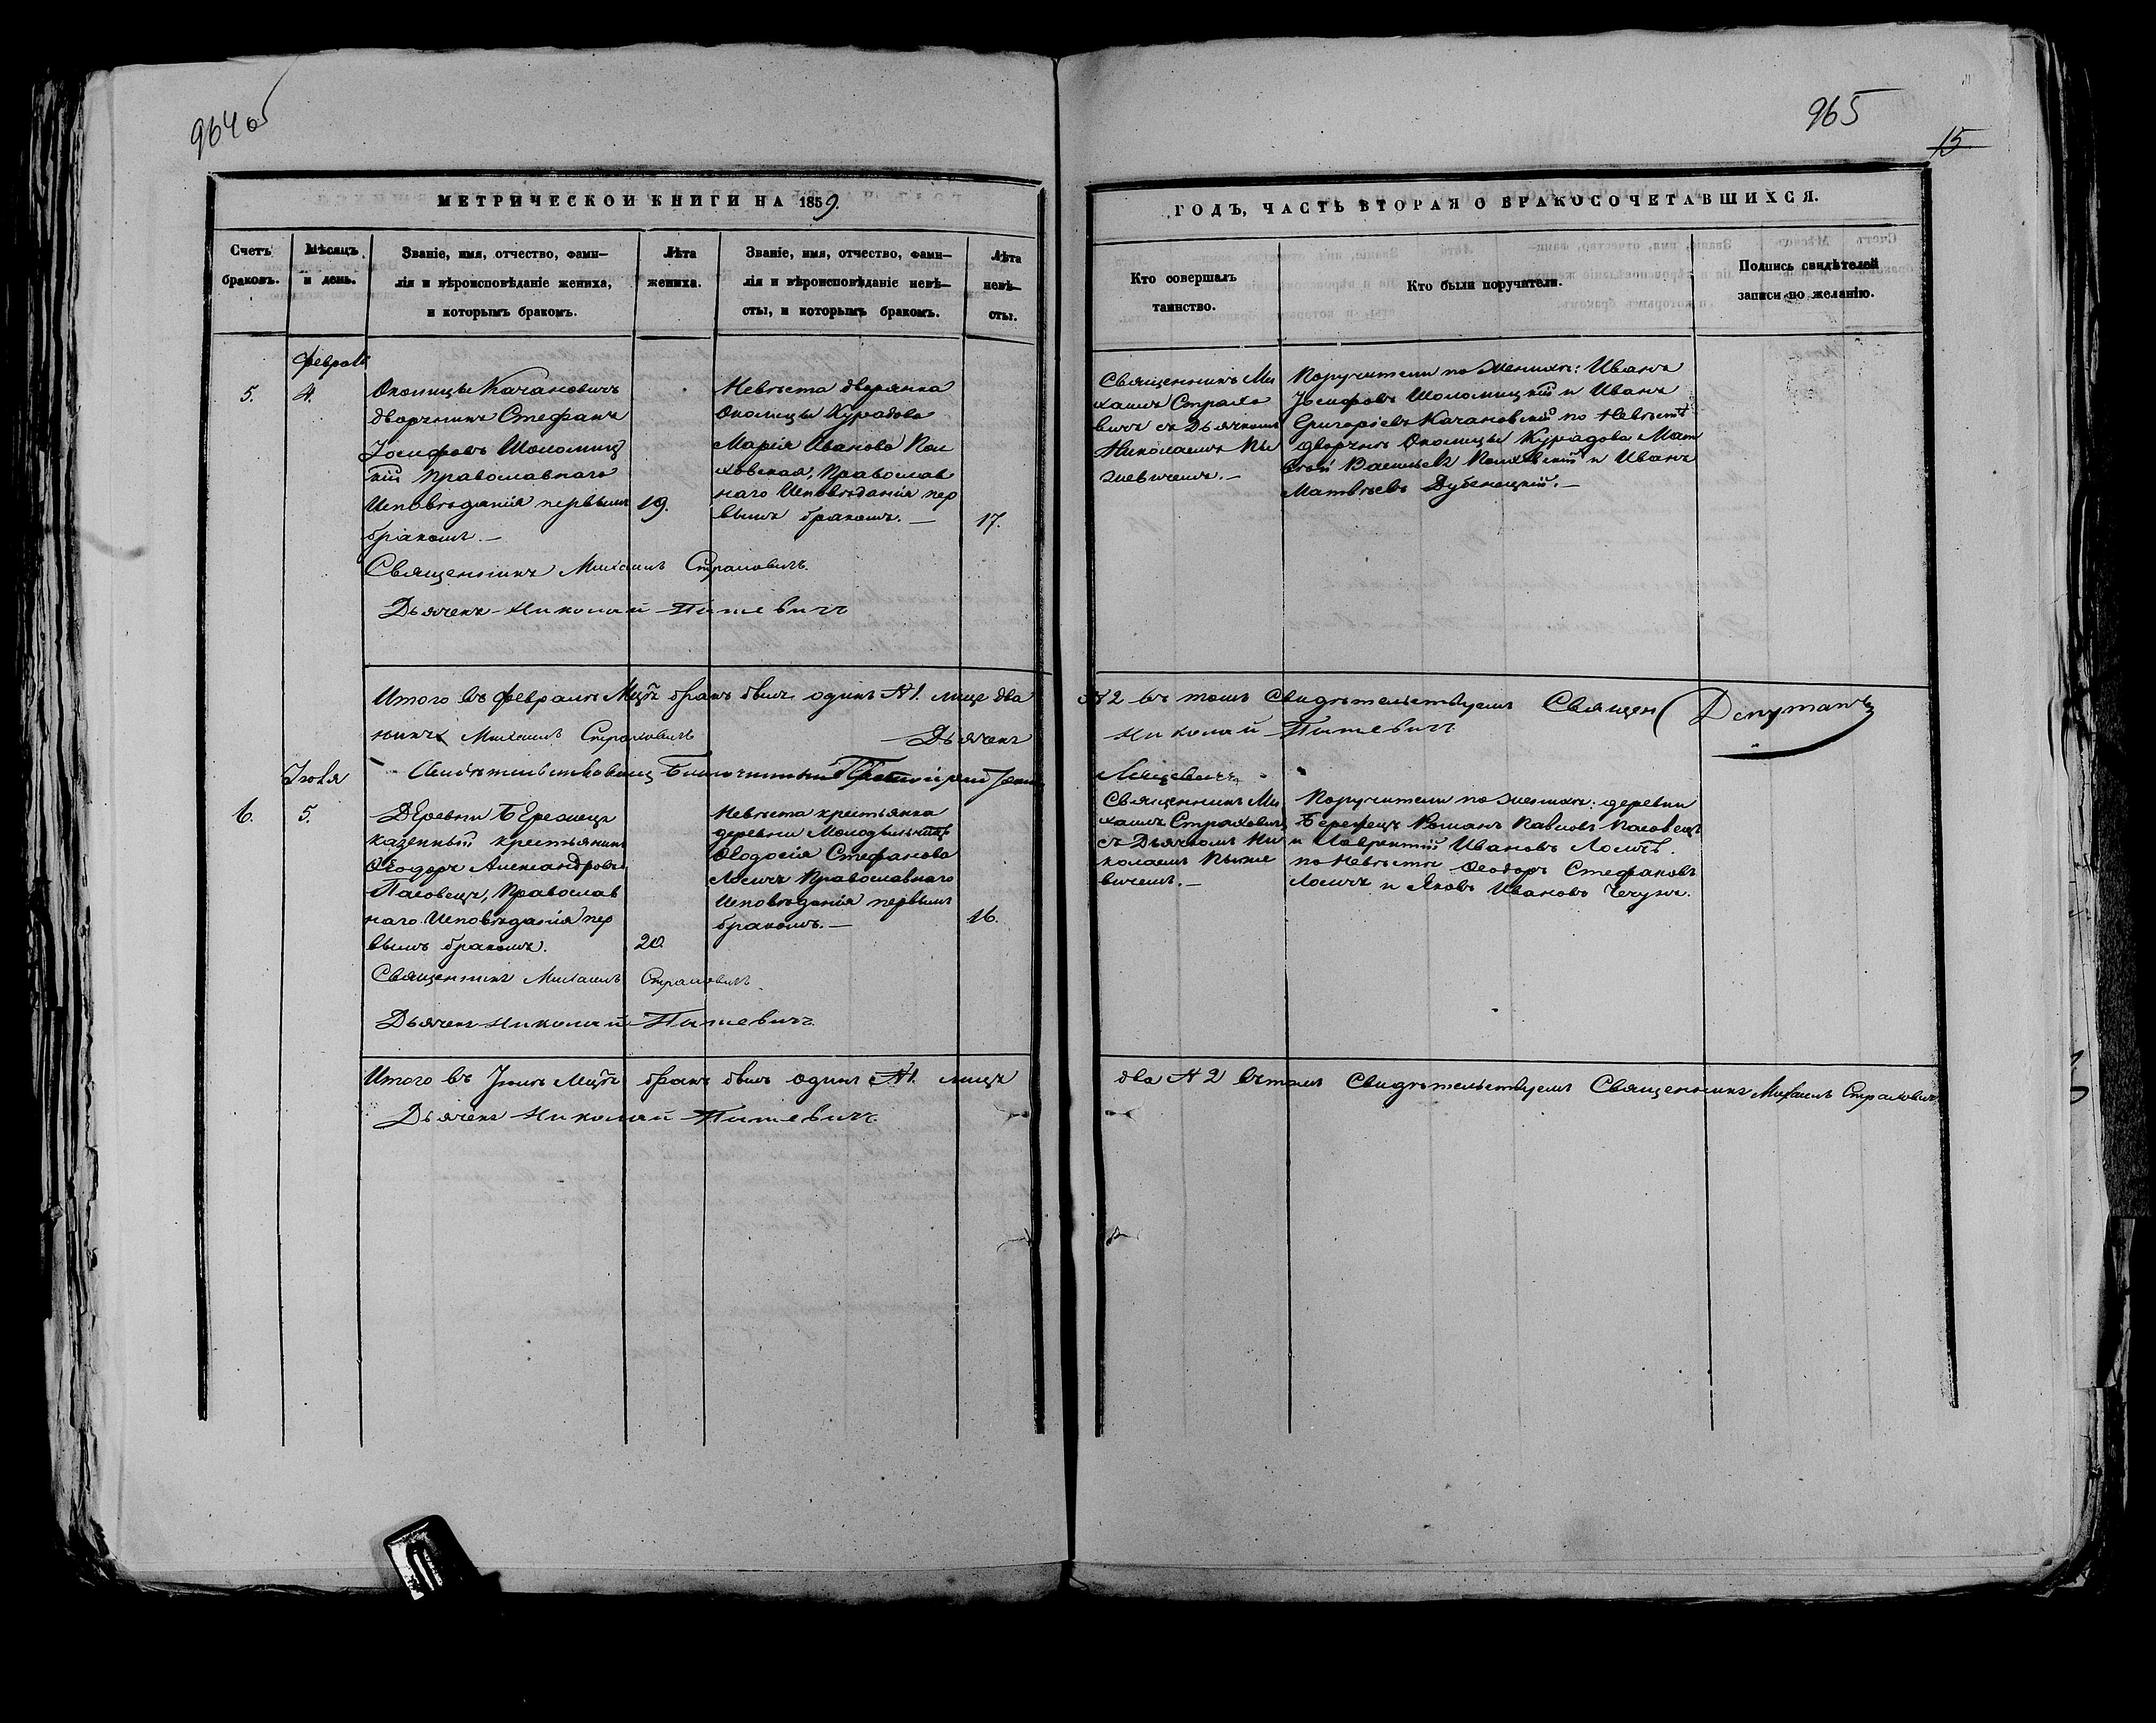 964об
965
15
МЕТРИЧЕСКОЙ КНИГИ НА 1859.
ГОДЪ, ЧАСТЬ ВТОРАЯ О БРАКОСОЧЕТАВШИХСЯ.
Счетъ
браковъ.
Мѣсяцъ
и день.
Званіе, имя, отчество, фами-
лія и вѣроисповѣданіе жениха,
и которымъ бракомъ.
Лѣта
жениха.
Званіе, имя, отчество, фами-
лія и вѣроисповѣданіе невѣ-
сты, и которымъ бракомъ.
Лѣта
невѣ-
сты.
Кто совершалъ
таинство.
Кто были поручители.
Подпись свидѣтелей
записи по желанію.
Февраля
5.
4.
Околицы Качановичъ
дворянинъ Стефанъ
Іосифовъ Шоломиц
кій Православнаго
Исповѣданія первымъ
бракомъ.—
19.
Невѣста дворянка
Околицы Курадова
Марія Иванова Пол
ховская, Православ
наго Исповѣданія пер
вымъ бракомъ.—
17.
Священникъ Ми
хаилъ Страхо
вичъ съ Дьячкомъ
Николаемъ Пы
жевичемъ.—
Поручители по Женихѣ: Иванъ
Іосифовъ Шоломицкій и Иванъ
Григорьевъ Качановскій по Невѣстѣ
дворяне Околицы Курадова Мат
вѣй Васильевъ Полховскій и Иванъ
Матвѣевъ Дубенецкій.—
Священникъ Михаилъ Страховичъ.
Дьячекъ Николай Пыжевичъ
Итого въ Февралѣ Мцѣ бракъ былъ одинъ №1. лице два
№2 въ томъ Свидѣтельствуемъ Священ
Депутатъ
никъ Михаилъ Страховичъ Дьячекъ
Николай Пыжевичъ
Свидѣтельствовалъ Благочинный
Іюля
6.
5.
Деревни Бережецъ
казенный крестьянинъ
Ѳеодоръ Александровъ
Пасовецъ, Православ
наго Исповѣданія пер
вымъ бракомъ.
20.
Невѣста крестьянка
деревни
Ѳеодосія Стефанова
Лосичъ Православнаго
Исповѣданія первымъ
бракомъ.—
16.
Священникъ Ми
хаилъ Страховичъ
съ Дьячкомъ Ни
колаемъ Пыже
вичемъ.—
Поручители по Женихѣ: деревни
Бережецъ Романъ Павловъ Пасовецъ
и Лаврентій Ивановъ Лосичъ.
по Невѣстѣ Ѳеодоръ Стефановъ
Лосичъ и Яковъ Ивановъ Чечунъ.
Священникъ Михаилъ Страховичъ.
Дьячекъ Николай Пыжевичъ.
Итого въ Іюлѣ Мцѣ бракъ былъ одинъ №1. лицъ
два №2 въ томъ Свидѣтельствуемъ Священникъ Михаилъ Страховичъ
Дьячекъ Николай Пыжевичъ.